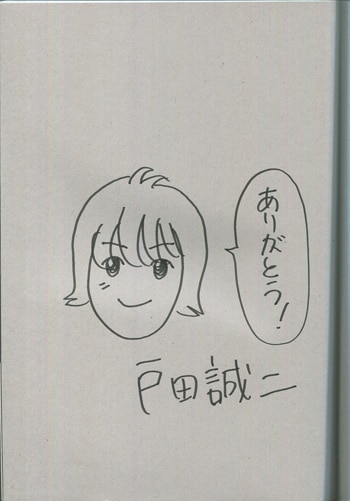 ありがとう！
戸田誠二